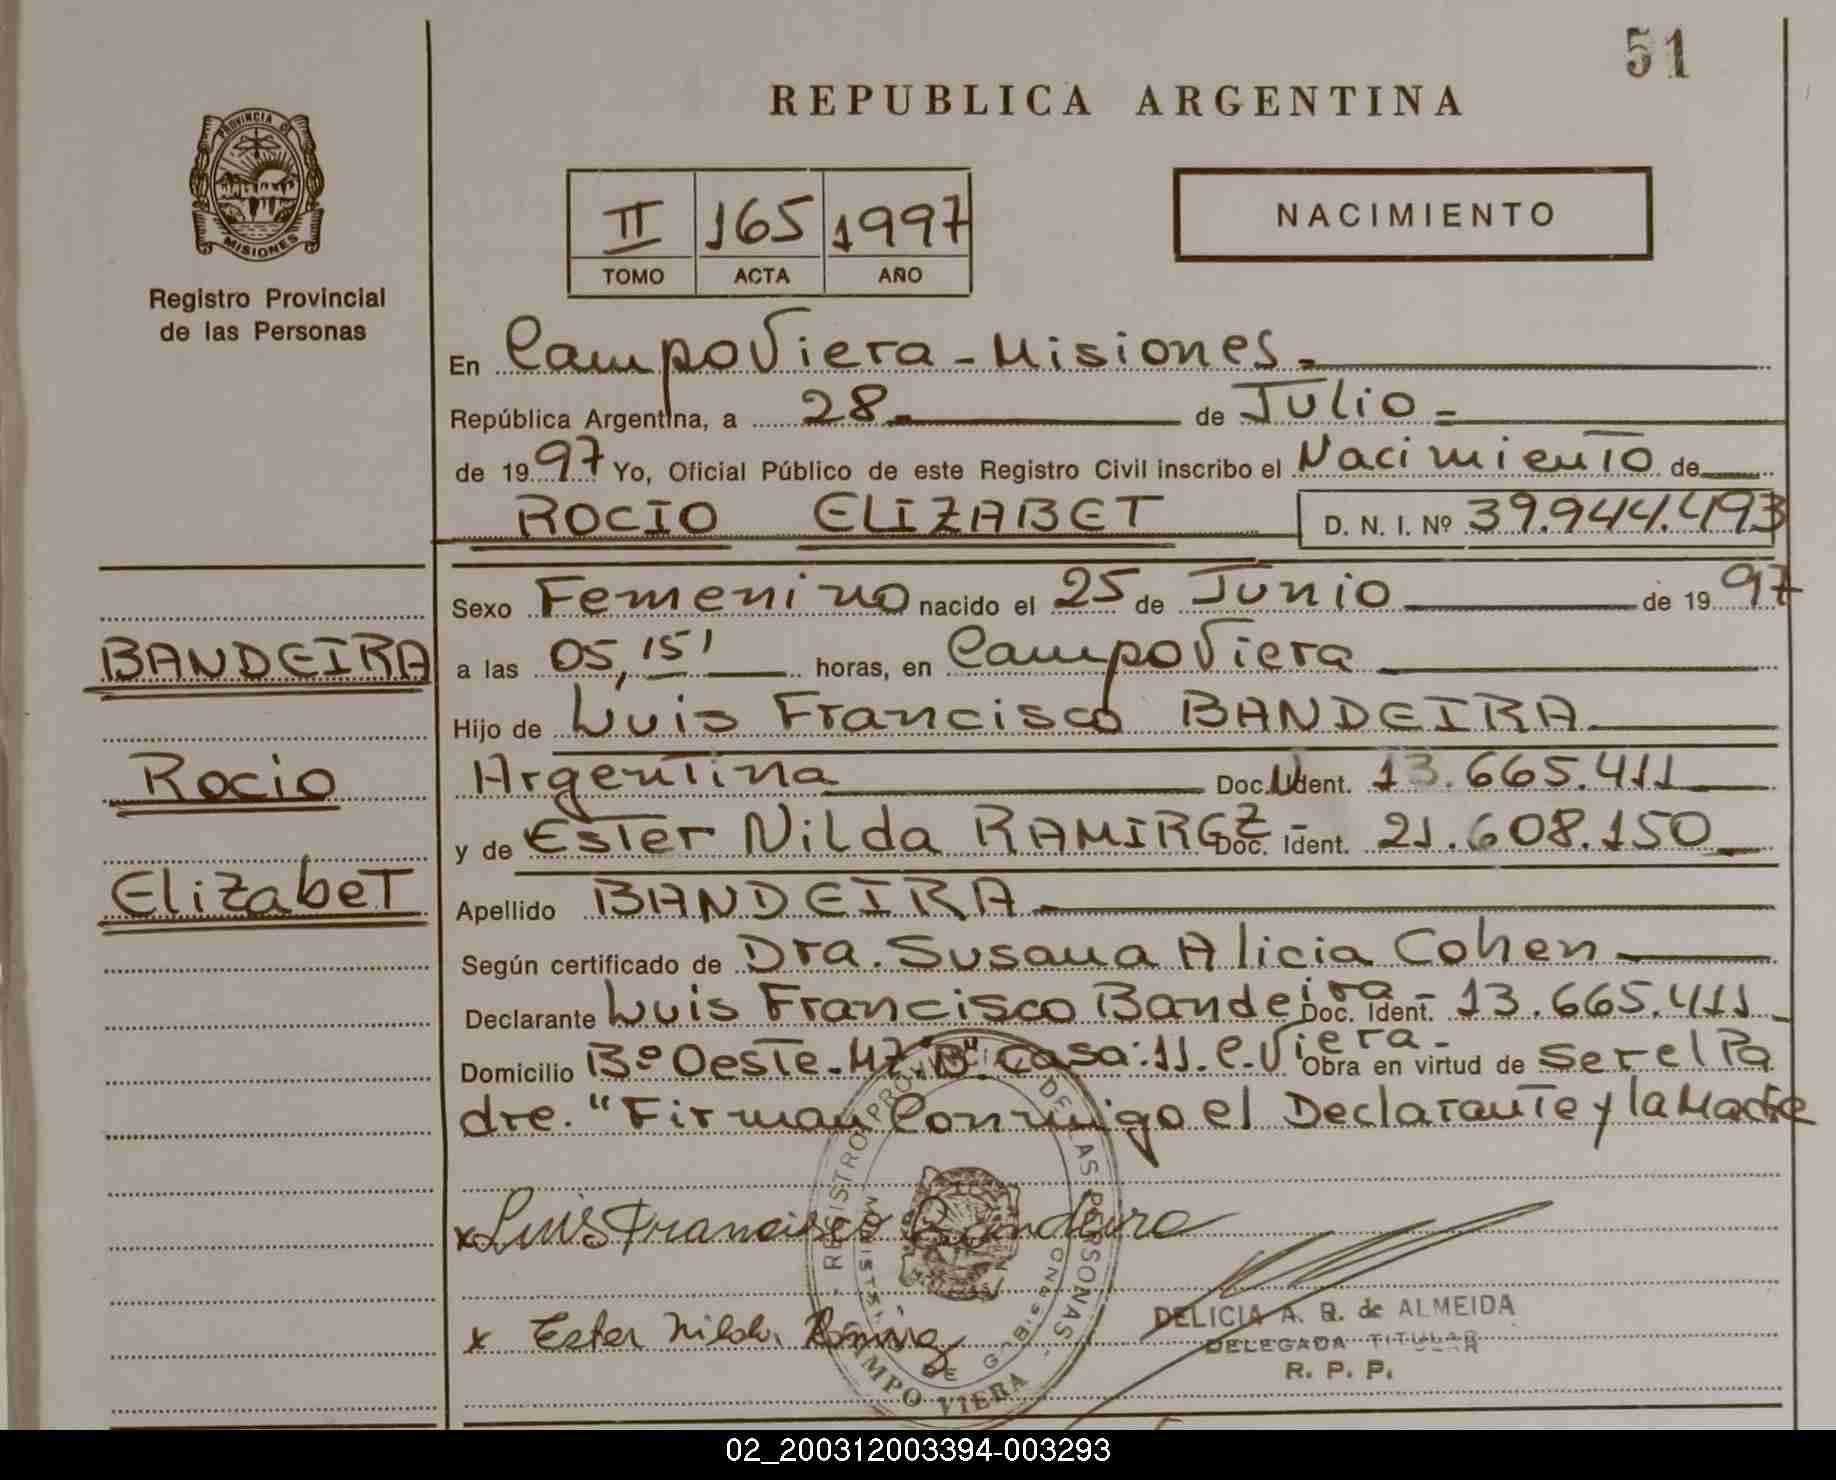 51
REPUBLICA ARGENTINA
PROVINCIA DE
MISIONES
Registro Provincial
de las Personas
II 165 1997
TOMO ACTA AÑO
NACIMIENTO
En Campo Viera - Misiones.
República Argentina, a 28 de Julio
de 1997 Yo, Oficial Público de este Registro Civil inscribo el Nacimiento de
ROCIO ELIZABET D. N. I. Nº 39.944.493
Sexo Femenino nacido el 25 de Junio de 1997
BANDEIRA
a las 05,15' horas, en Campo Viera
Hijo de Luis Francisco BANDEIRA
Rocio
Argentina Doc. Ident. 13.665.411
y de Ester Nilda RAMIREZ Doc. Ident. 21.608.150
Elizabet
Apellido BANDEIRA
Según certificado de Dra. Susana Alicia Cohen
Declarante Luis Francisco Bandeira Doc. Ident. 13.665.411
Domicilio Bº Oeste. Mz."B". Casa: 11. C. Viera. Obra en virtud de ser el Pa
dre. "Firman Conmigo el Declarante y la Madre
x Luis Francisco Bandeira
x Ester Nilda Ramirez
REGISTRO PROVINCIAL DE LAS PERSONAS
CAMPO VIERA
DELICIA A. R. de ALMEIDA
DELEGADA TITULAR
R. P. P.
02_200312003394-003293